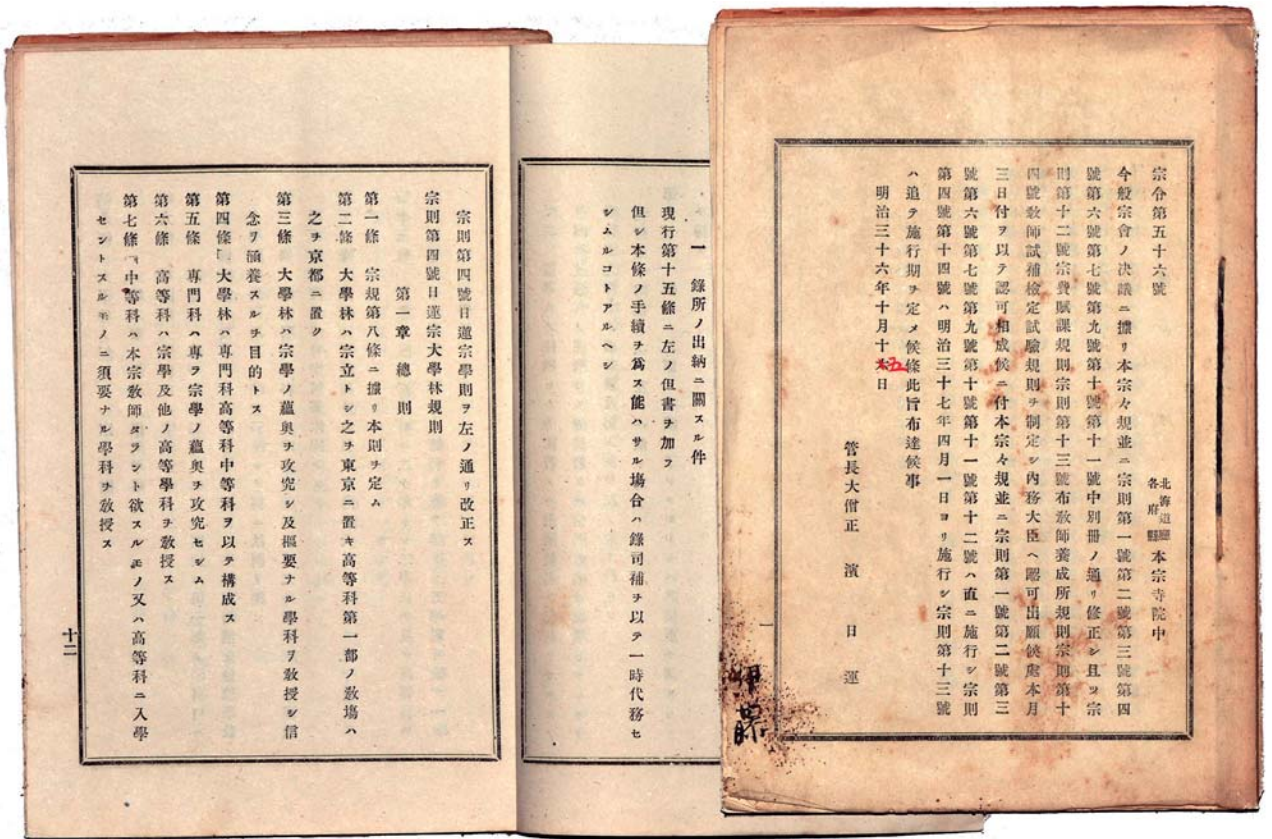 宗令第五十六號
北海道廳
各府縣
本宗寺院中
今般宗會ノ決議ニ據リ本宗々規並ニ宗則第一號第二號第三號第四
號第六號第七號第九號第十號第十一號中別冊ノ通リ修正シ且ツ宗
則第十二號宗費賦課規則宗則第十三號布教師養成所規則宗則第十
四號教師試補檢定試驗規則ヲ制定シ內務大臣ヘ認可出願候處本月
三日付ヲ以テ認可相成候ニ付本宗々規並ニ宗則第一號第二號第三
號第六號第七號第九號第十號第十一號第十二號ハ直ニ施行シ宗則
第四號第十四號ハ明治三十七年四月一日ヨリ施行シ宗則第十三號
ハ追テ施行期ヲ定メ候條此旨布達候事
明治三十六年十月十五日
管長大僧正 濱 日 運
一
一 錄所ノ出納ニ關スル件
現行第十五條ニ左ノ但書ヲ加フ
但シ本條ノ手續ヲ爲ス能ハサル場合ハ錄司補ヲ以テ一時代務セ
シムルコトアルヘシ
宗則第四號日蓮宗學則ヲ左ノ通リ改正ス
宗則第四號日蓮宗大學林規則
第一章 總則
第一條 宗規第八條ニ據リ本則ヲ定ム
第二條 大學林ハ宗立トシ之ヲ東京ニ置キ高等科第一部ノ敎場ハ
之ヲ京都ニ置ク
第三條 大學林ハ宗學ノ蘊奧ヲ攻究シ及樞要ナル學科ヲ敎授シ信
念ヲ涵養スルヲ目的トス
第四條 大學林ハ專門科高等科中等科ヲ以テ構成ス
第五條 專門科ハ專ラ宗學ノ蘊奧ヲ攻究セシム
第六條 高等科ハ宗學及他ノ高等學科ヲ敎授ス
第七條 中等科ハ本宗敎師タラント欲スルモノ又ハ高等科ニ入學
セントスルモノニ須要ナル學科ヲ敎授ス
十二